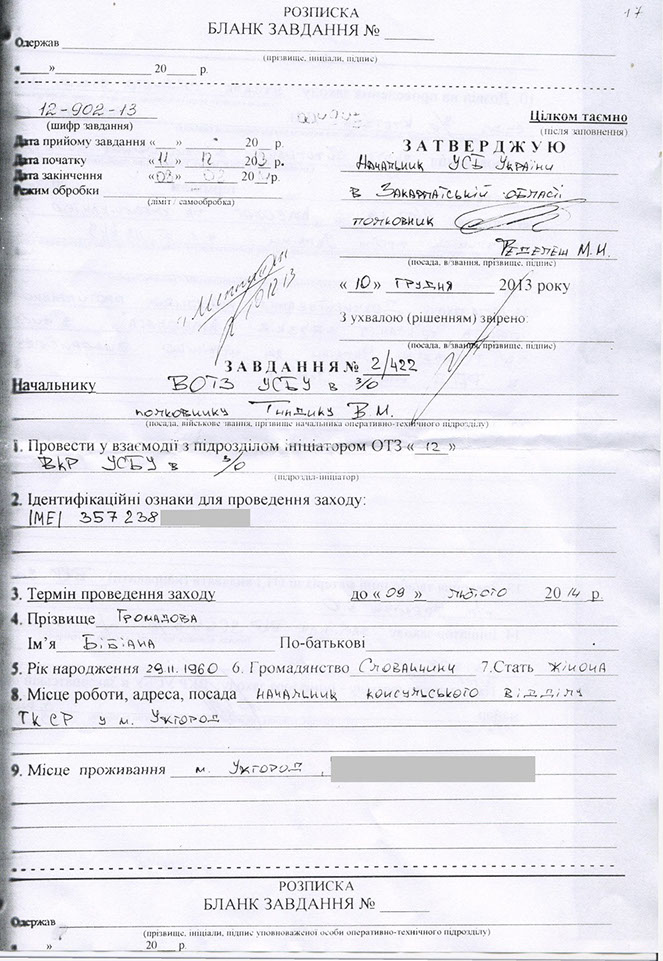 17
РОЗПИСКА
БЛАНК ЗАВДАННЯ №
Одержав
(прізвище, ініціали, підпис)
« » 20 р.
12-902-13
(шифр завдання)
Цілком таємно
(після заповнення)
Дата прийому завдання « » 20 р.
Дата початку «11» 12 2013 р.
Дата закінчення «09» 02 2014 р.
Режим обробки
(ліміт / самообробка)
ЗАТВЕРДЖУЮ
Начальник УСБ України
в Закарпатській області
полковник
Ведепеш М.И.
(посада, в/звання, прізвище, підпис)
«10» грудня 2013 року
10.12.13
З ухвалою (рішенням) звірено:
(посада, в/звання, прізвище, підпис)
ЗАВДАННЯ № 2/422
Начальнику ВОТЗ УСБУ в З/О
полковнику Тиндику В.М.
(посада, військове звання, прізвище начальника оперативно-технічного підрозділу)
1. Провести у взаємодії з підрозділом ініціатором ОТЗ « 12 »
ВКР УСБУ в З/О
(підрозділ-ініціатор)
2. Ідентифікаційні ознаки для проведення заходу:
IMEI 357238
3. Термін проведення заходу до « 09 » лютого 2014 р.
4. Прізвище Громадова
Ім'я Бібіана По-батькові
5. Рік народження 29.11.1960 6. Громадянство Словаччини 7.Стать жіноча
8. Місце роботи, адреса, посада начальник консульського відділу
ГК СР у м. Ужгород
9. Місце проживання м. Ужгород,
РОЗПИСКА
БЛАНК ЗАВДАННЯ №
Одержав
(прізвище, ініціали, підпис уповноваженої особи оперативно-технічного підрозділу)
« » 20 р.